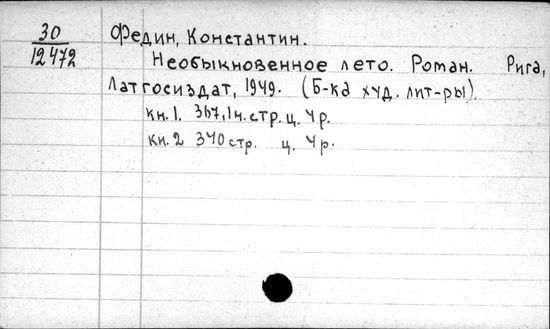 30
12472
Федин, Константин.
Необыкновенное лето. Роман. Рига,
Латгосиздат, 1949. (Б-ка худ. лит-ры).
кн. 1. 367, 1н. стр. ц. 4р.
кн. 2 340 стр. ц. 4р.